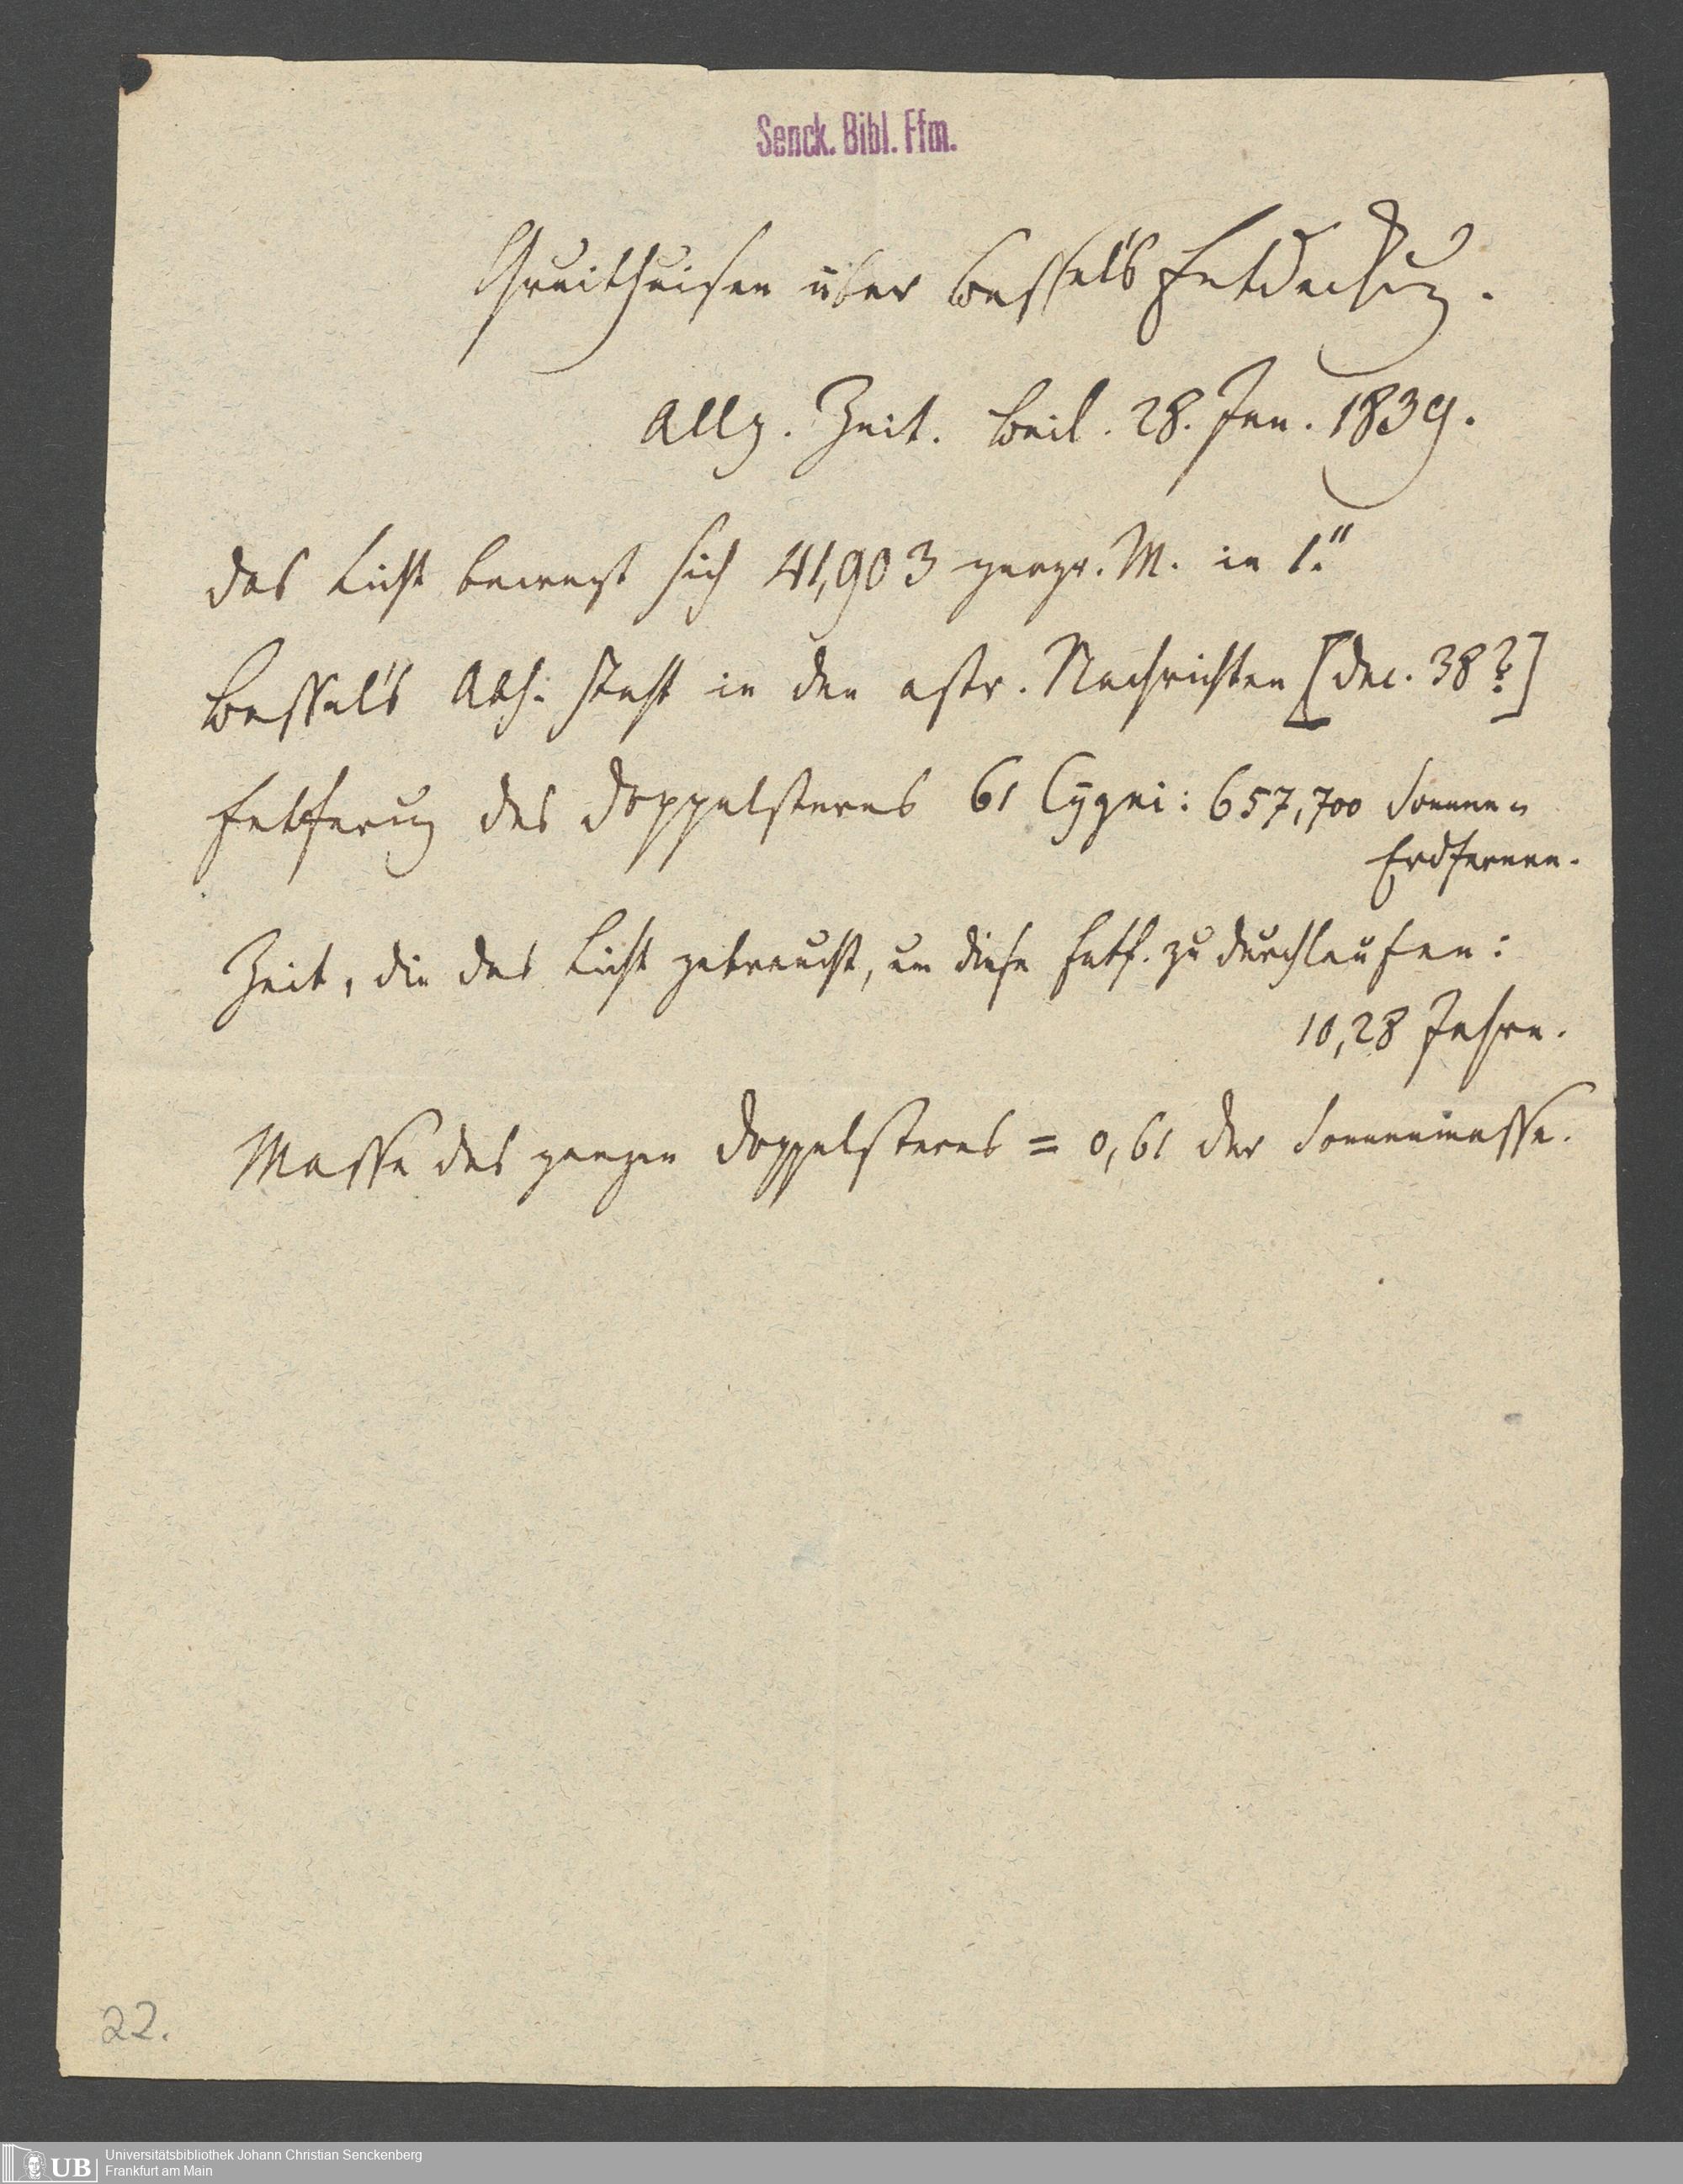 Senck. Bibl. Ffm.
Gruithuisen über Bessel's Entdeckung.
Allg. Zeit. Beil. 28. Jan. 1839.
Das Licht bewegt sich 41,903 geogr. M. in 1."
Bessel's Abh. steht in den astr. Nachrichten [Dec. 38?]
Entfernung des Doppelsternes 61 Cygni: 657,700 Sonnen-
Erdfernen.
Zeit, die das Licht gebraucht, um diese Entf. zu durchlaufen:
10,28 Jahre.
Masse des ganzen Doppelsternes = 0,61 der Sonnenmasse.
22.
UB
Universitätsbibliothek Johann Christian Senckenberg
Frankfurt am Main